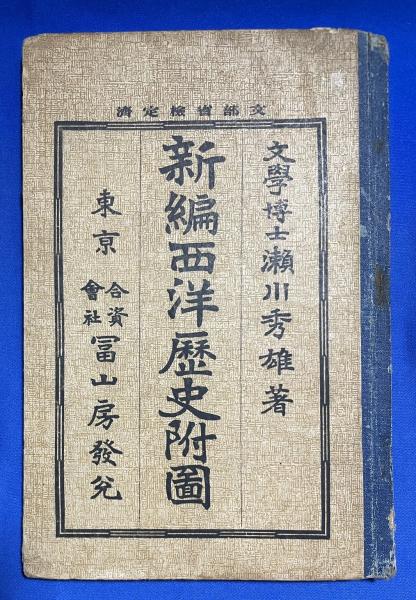 文部省檢定濟
文學博士瀨川秀雄著
新編西洋歷史附圖
東京 合資會社 冨山房發兌